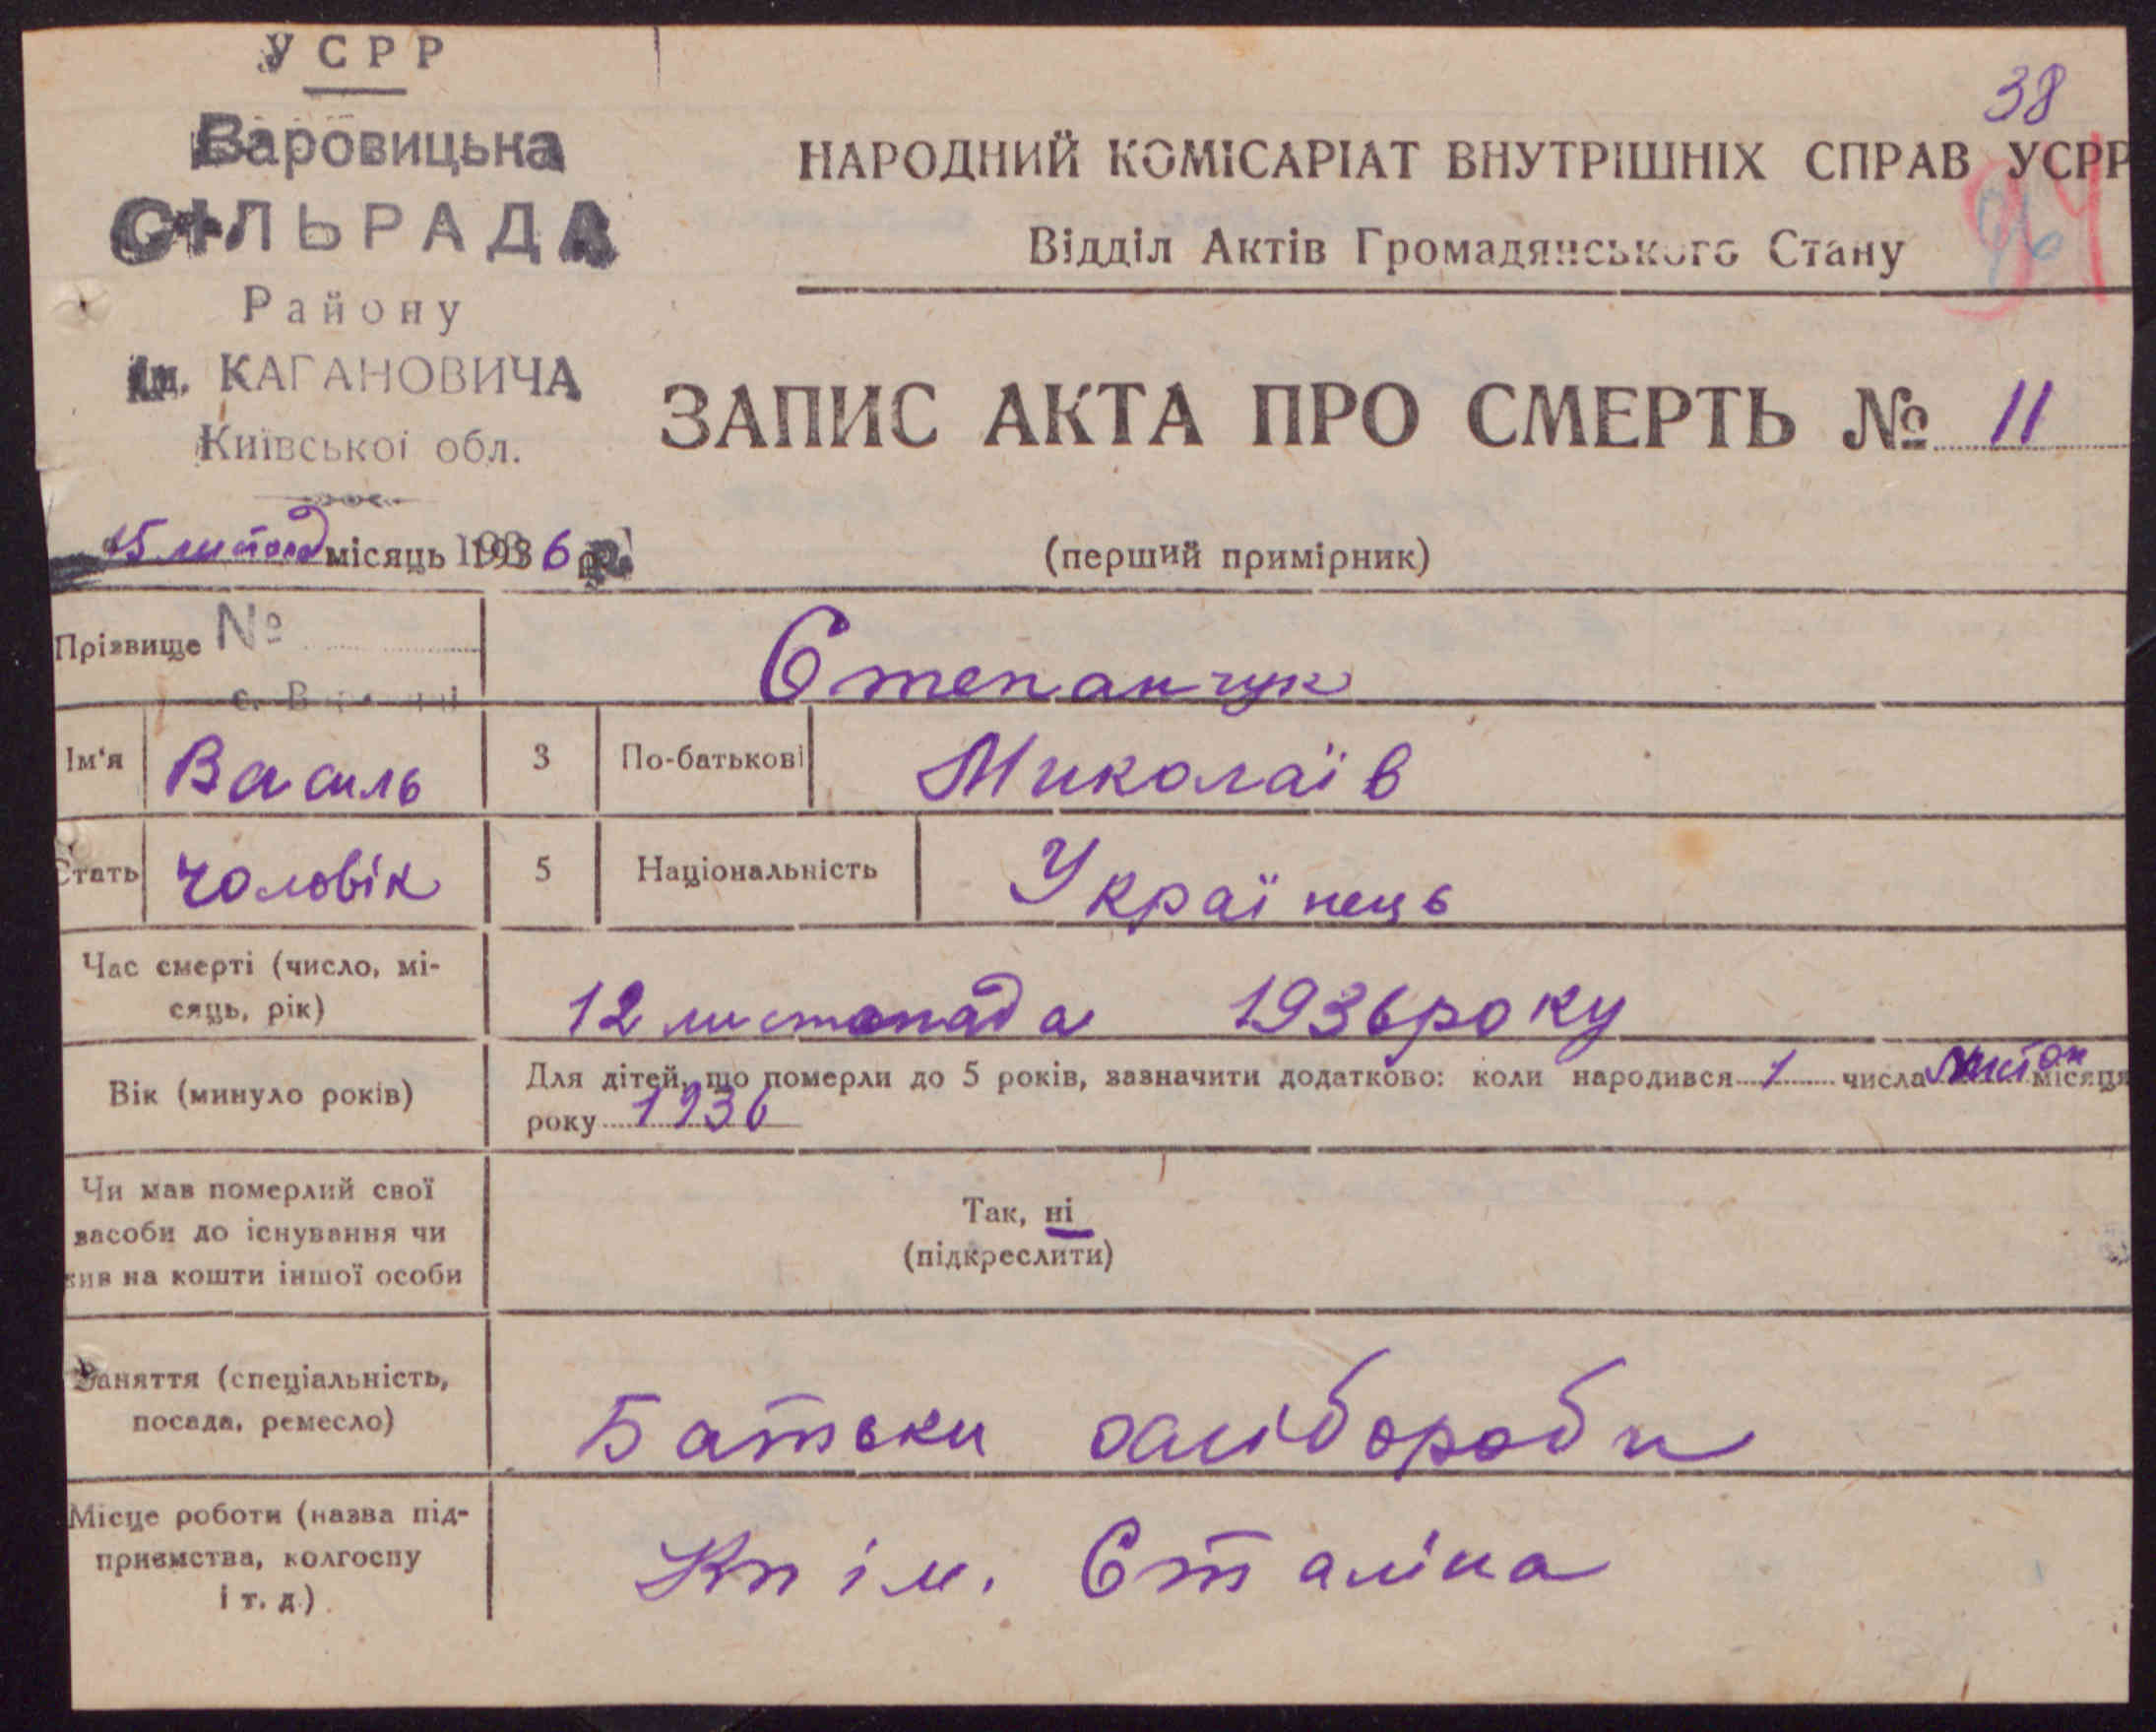 УСРР
Варовицька
СІЛЬРАДА
Району
ім. КАГАНОВИЧА
Київської обл.
38
НАРОДНИЙ КОМІСАРІАТ ВНУТРІШНІХ СПРАВ УСРР
Відділ Актів Громадянського Стану
ЗАПИС АКТА ПРО СМЕРТЬ № 11
15 листопад місяць 1936 р.
(перший примірник)
Прізвище №
Степанчук
Ім'я Василь 3 По-батькові Миколаїв
Стать чоловік 5 Національність Українець
Час смерті (число, мі-
сяць, рік)
12 листопада 1936 року
Вік (минуло років)
Для дітей, що померли до 5 років, зазначити додатково: коли народився 1 числа листоп місяця
року 1936
Чи мав померлий свої
засоби до існування чи
жив на кошти іншої особи
Так, ні
(підкреслити)
Заняття (спеціальність,
посада, ремесло)
Батьки хлібороби
Місце роботи (назва під-
приємства, колгоспу
і т. д.)
Кп ім. Сталіна